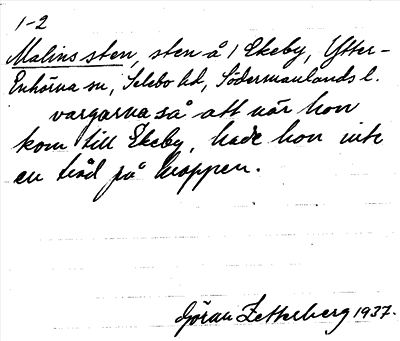 1-2
Malins sten, sten å / Ekeby, Ytter-
Enhörna sn, Selebo hd, Södermanlands l.
vargarna så att när hon
kom till Ekeby, hade hon inte
en tråd på kroppen.
Göran Zetterberg 1937.